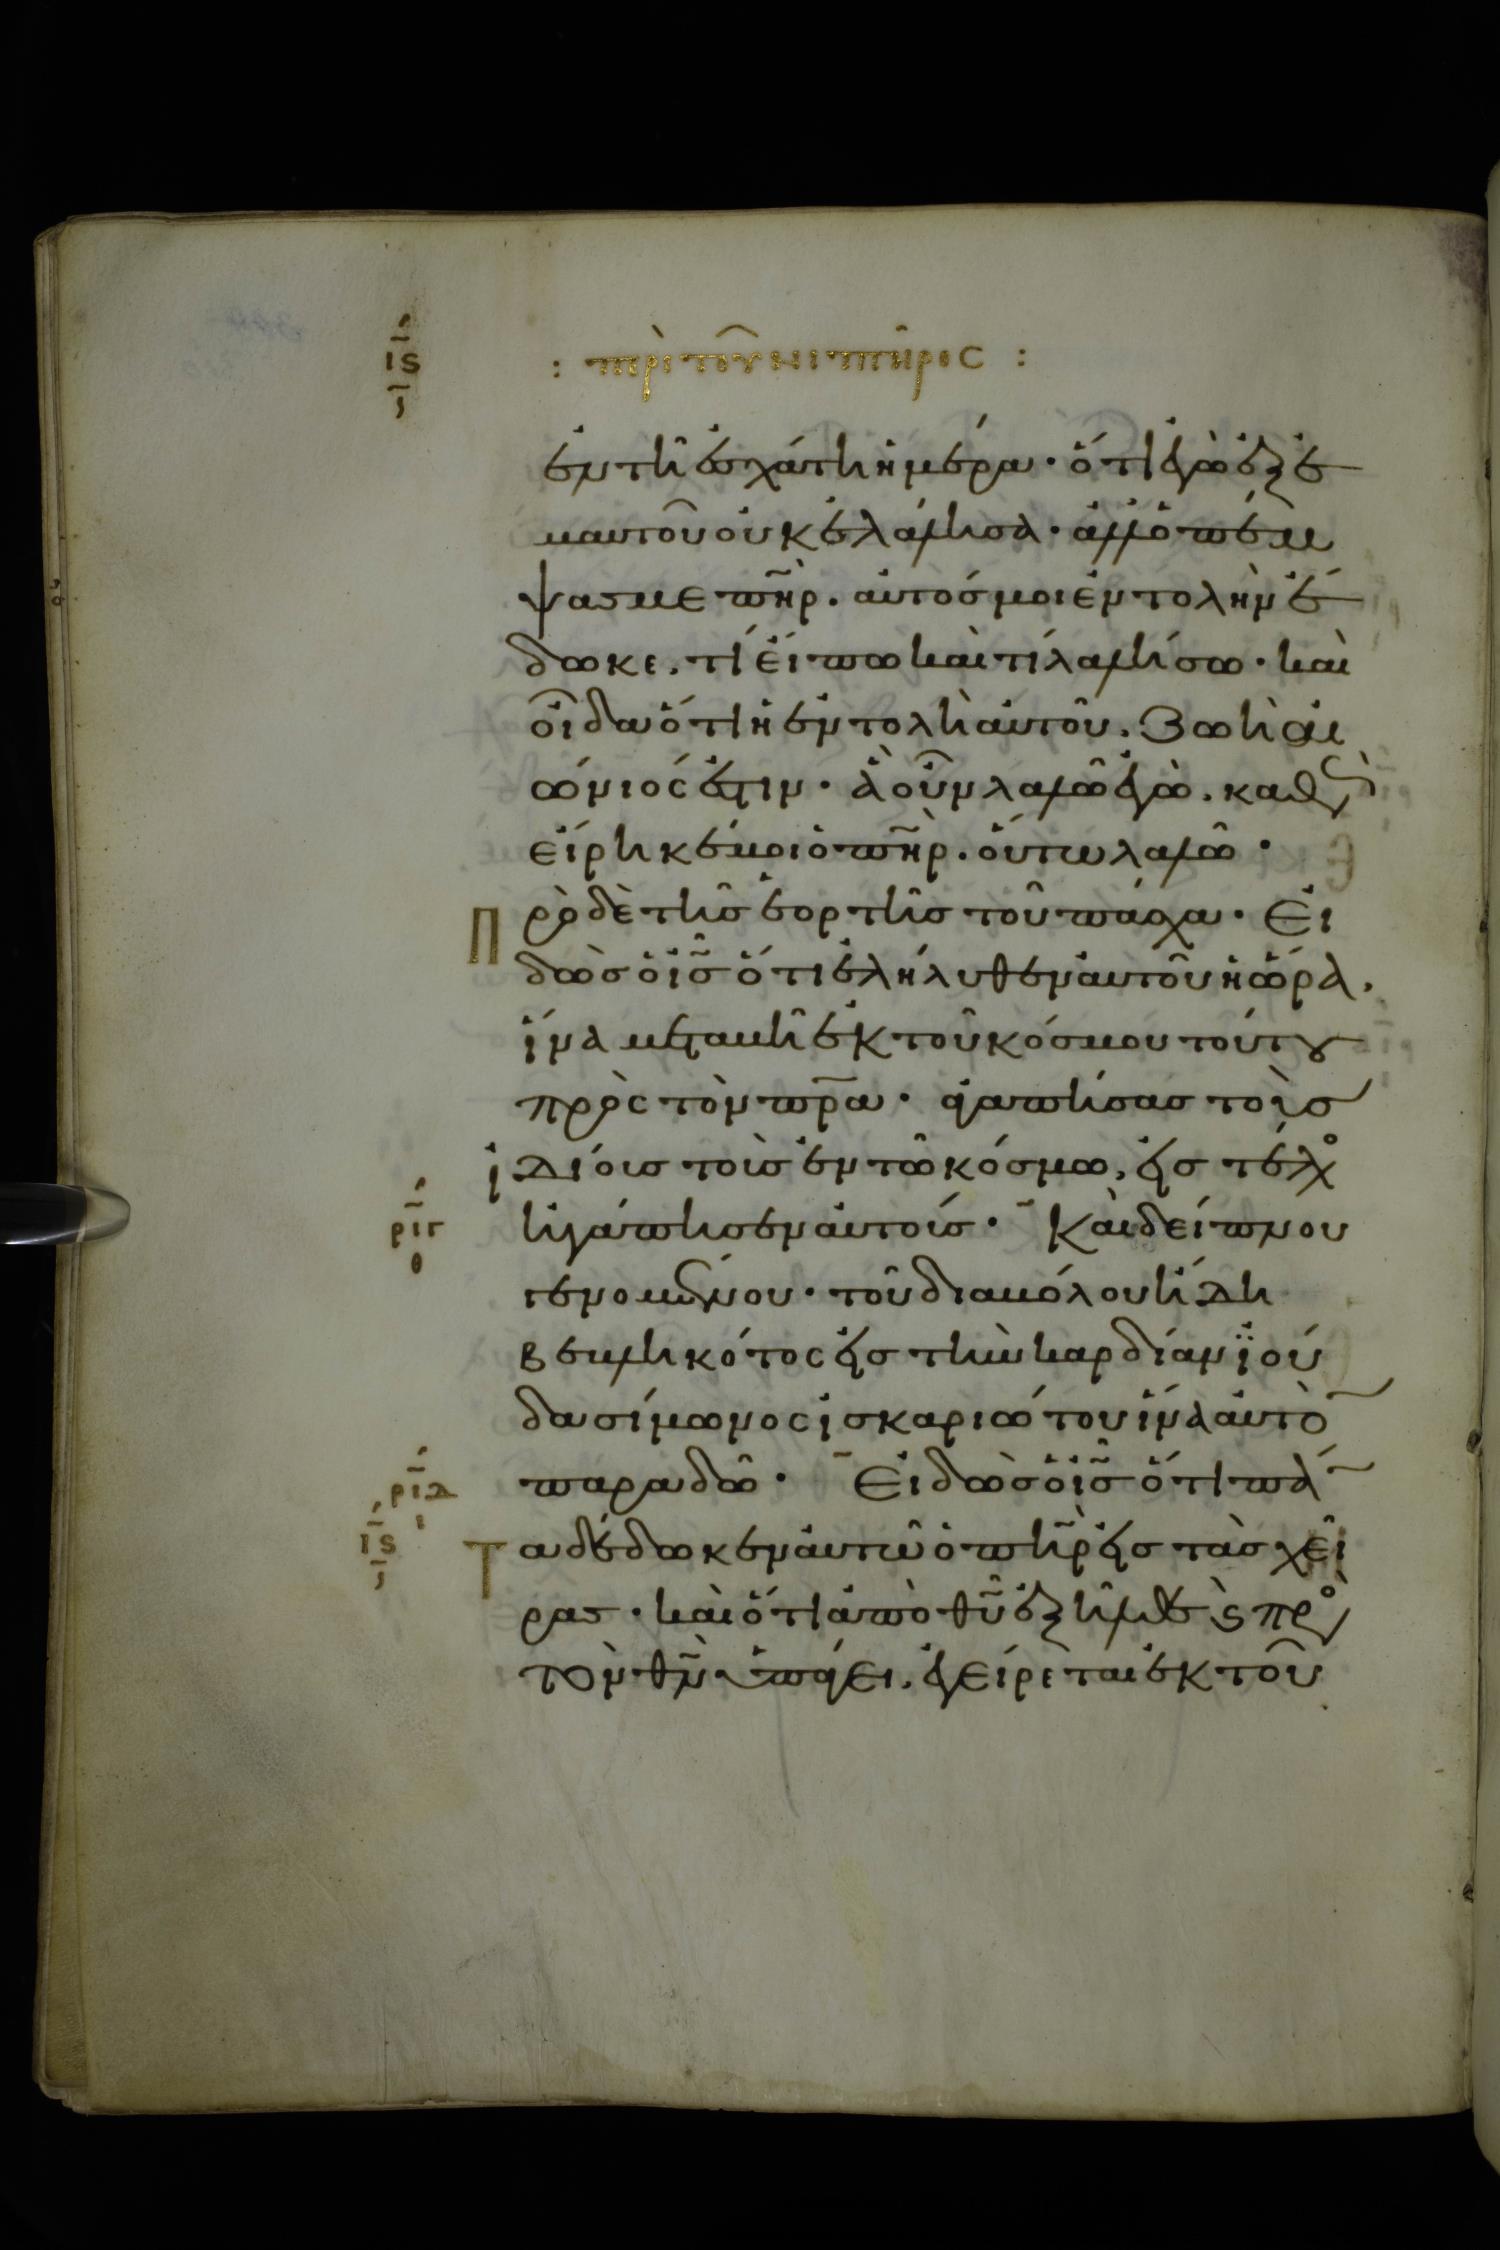 ις
: περὶ τοῦ νιπτῆρος :
ἐν τῆ ἐσχάτη ἡμέρα· ὅτι ἐγὼ ἐξ ἐ
μαυτοῦ οὐκ ἐλάλησα· ἀλλ ὁ πέμ
ψας με πη̅ρ. αὐτός μοι ἐντολὴν ἔ
δωκε. τί εἴπω καὶ τί λαλήσω· καὶ
οἶδα ὅτι ἡ ἐντολὴ αὐτοῦ. ζωὴ αἰ
ώνιός ἐστιν· ἃ οὖν λαλῶ ἐγὼ. καθὼς
εἴρηκέ μοι ὁ πη̅ρ. οὕτω λαλῶ·
Πρὸ δὲ τῆς ἑορτῆς τοῦ πάσχα· Εἰ
δὼς ὁ ι̅ς ὅτι ἐλήλυθεν αὐτοῦ ἡ ὥρα.
ἵνα μεταβῆ ἐκ τοῦ κόσμου τούτου
πρὸς τὸν πρ̅α· ἀγαπήσας τοὺς
ἰδίους τοὺς ἐν τῶ κόσμω, εἰς τέλος
ριγ
θ
ἠγάπησεν αὐτούς· Καὶ δείπνου
γενομένου· τοῦ διαβόλου ἤδη
βεβληκότος εἰς τὴν καρδίαν ϊού
δα σίμωνος ἰσκαριώτου ἵνα αὐτὸ̅
ριδ
ι
παραδῶ· Εἰδὼς ὁ ι̅ς ὅτι πά̅
ις
τα δέδωκεν αὐτῶ ὁ πη̅ρ εἰς τὰς χεῖ
ρας· καὶ ὅτι ἀπὸ θυ̅ ἐξῆλθε ϛ πρὸς
τὸν θν̅ ὑπάγει. ἐγείρεται ἐκ τοῦ